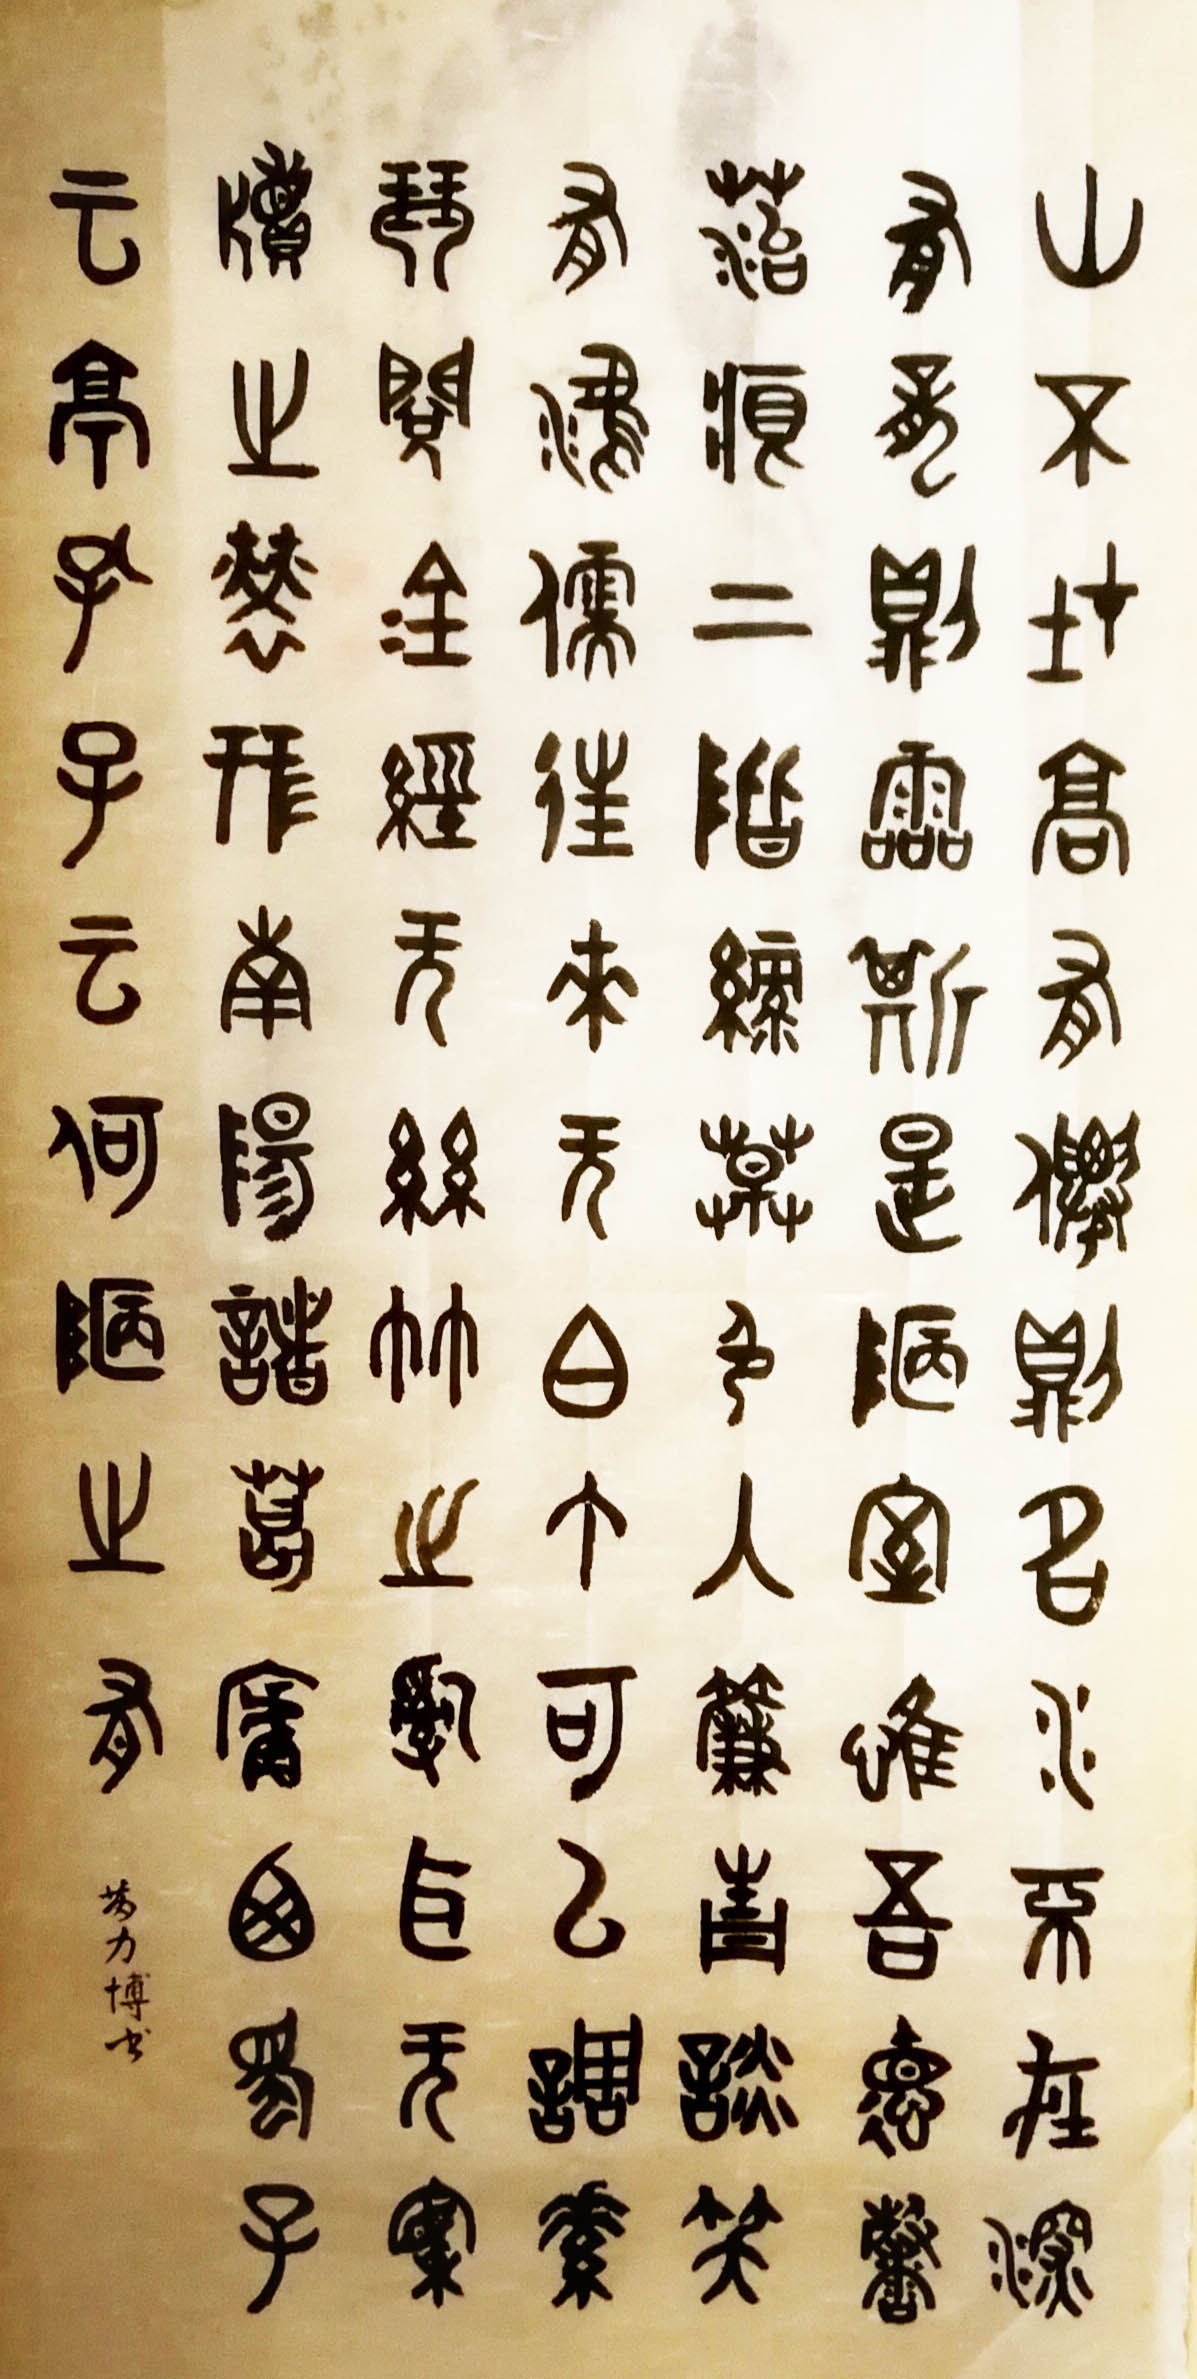 山不在高有僊則名水不在深
有龍則靈斯是陋室惟吾德馨
菭痕上階綠草色入簾青談笑
有鴻儒往來无白丁可以調素
琴閱金經无絲竹之亂耳无案
牘之勞形南陽諸葛廬西蜀子
云亭孔子云何陋之有
力博书